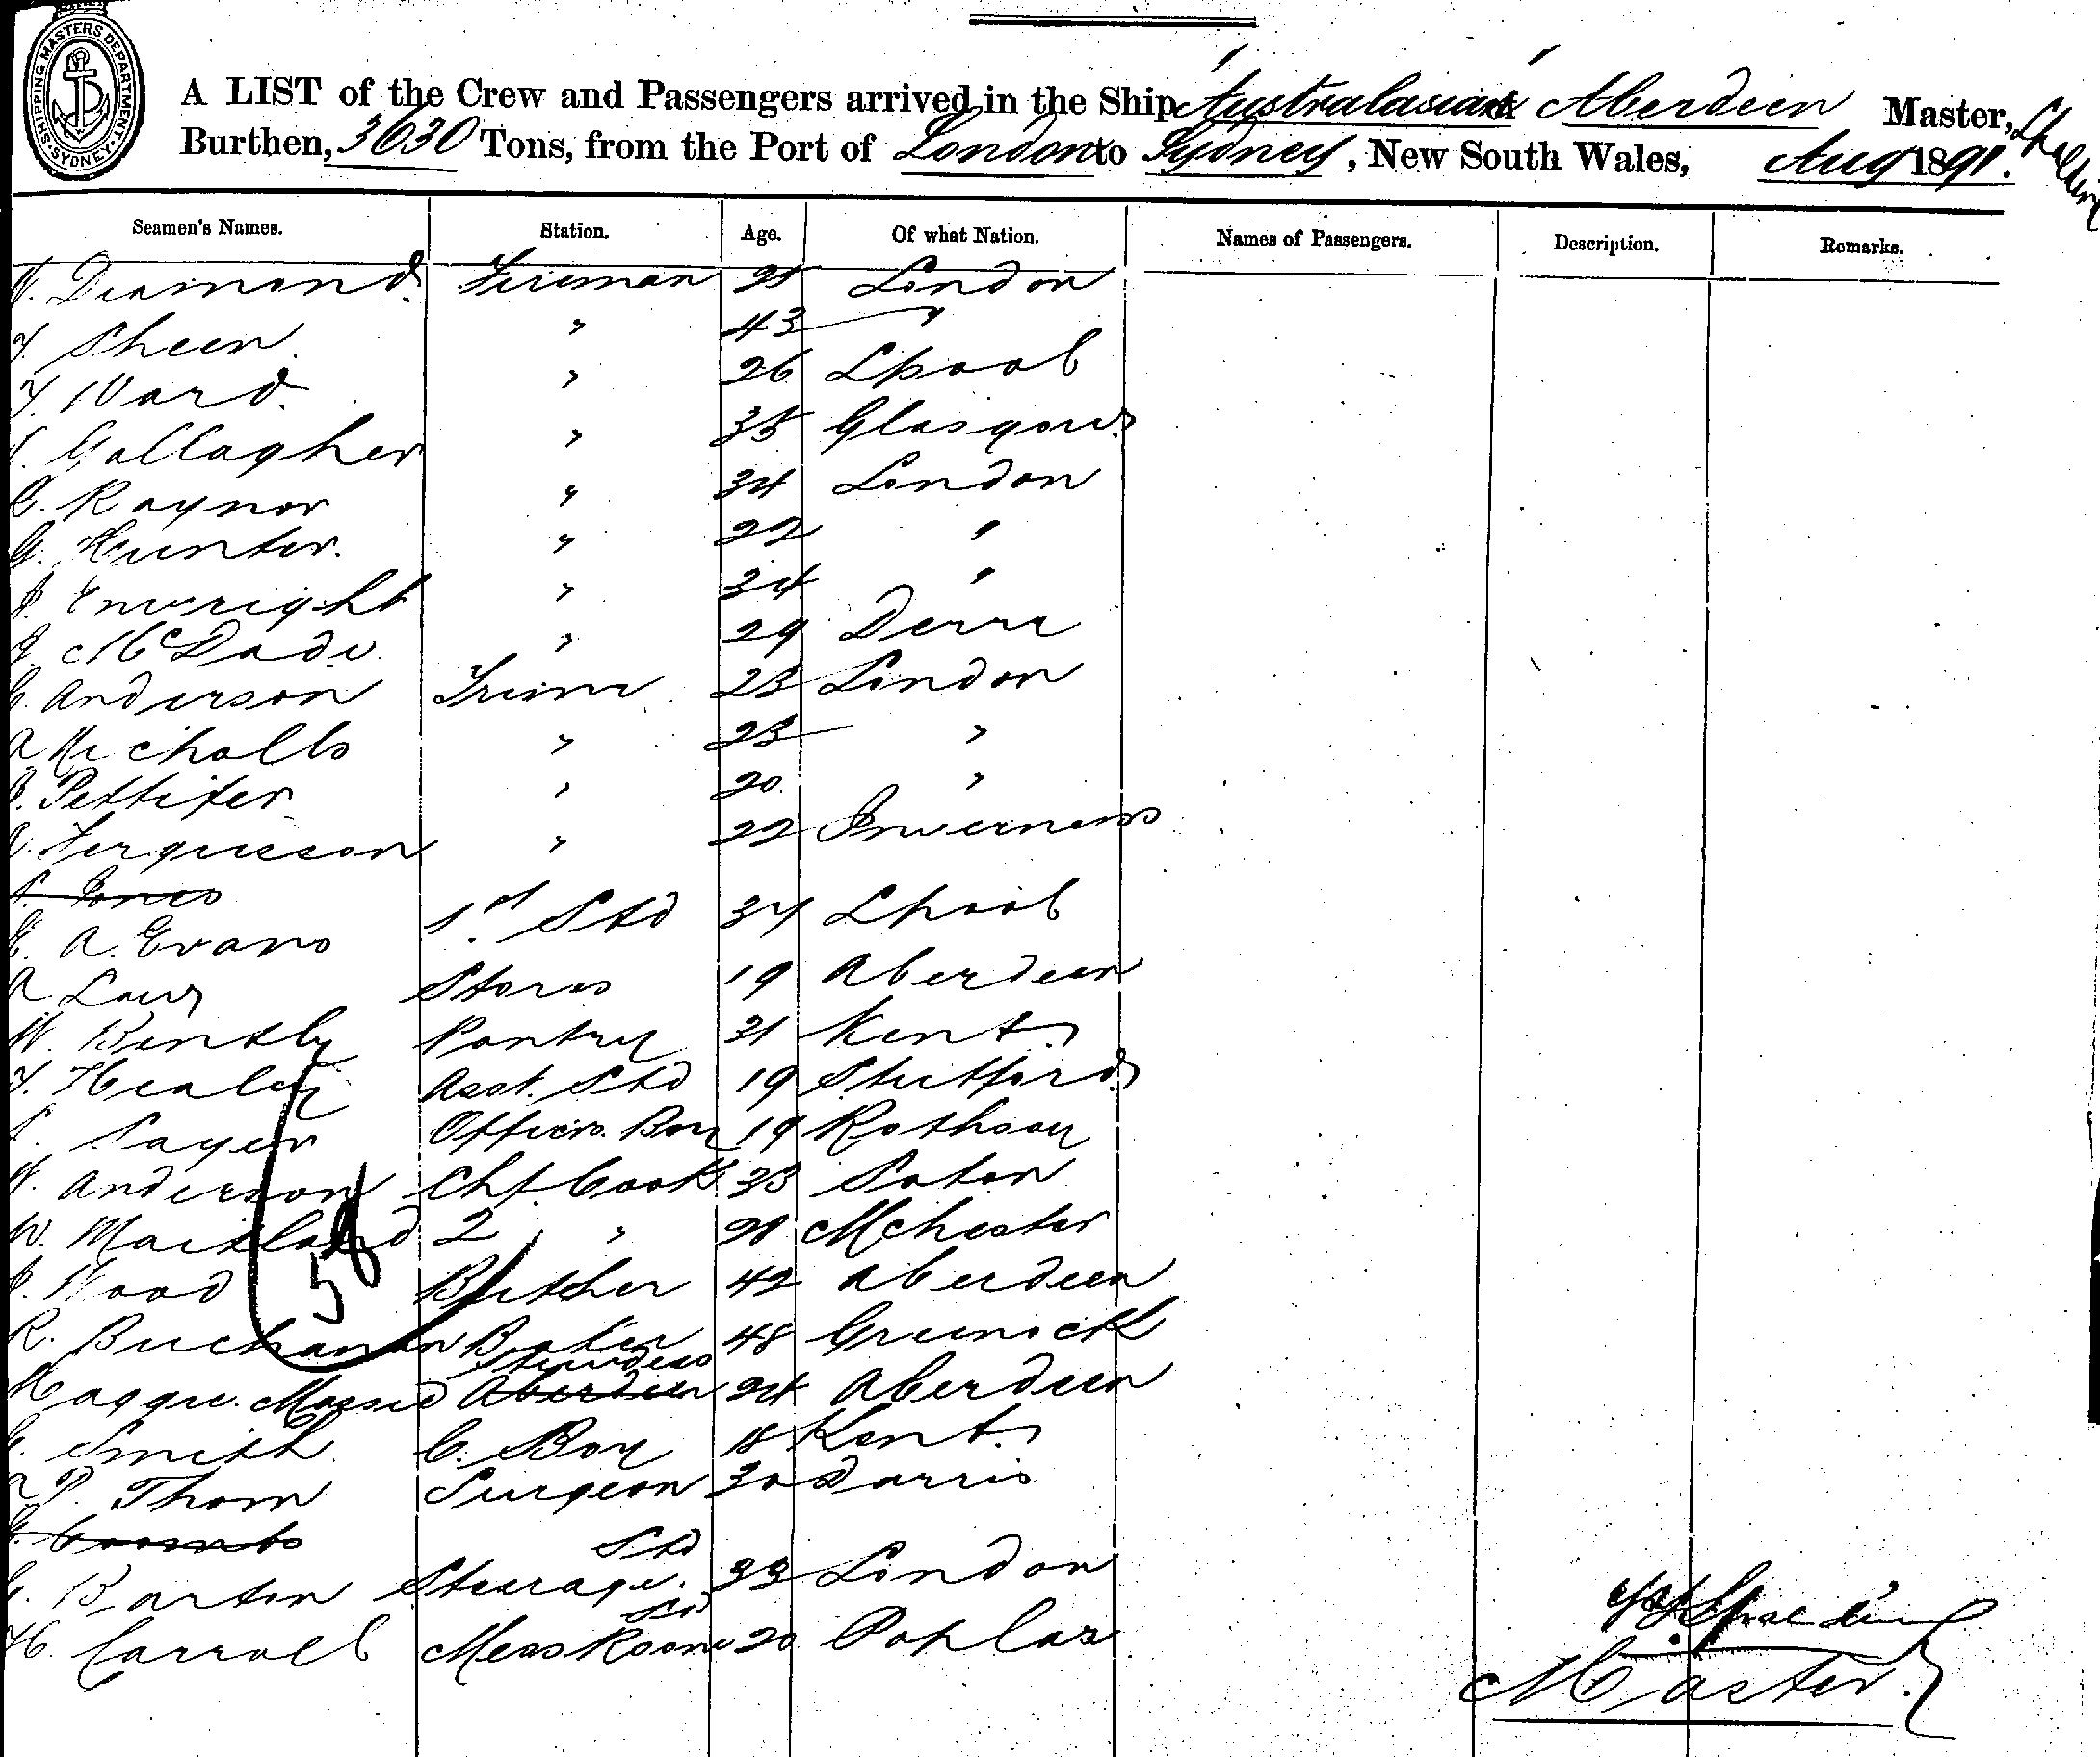 SHIPPING MASTERS DEPARTMENT SYDNEY
A LIST of the Crew and Passengers arrived in the Ship Australasian Aberdeen Master, Spalding
Burthen, 3630 Tons, from the Port of London to Sydney, New South Wales, Aug 1891.
Seamen's Names. Station. Age. Of what Nation. Names of Passengers. Description. Remarks.
Diamond Fireman 25 London
Sheen " 43 "
Ward " 26 Lpool
Gallagher " 35 Glasgow
Raynor " 34 London
G. Hunter " 22 "
Enwright " 34 "
McDade " 29
C. Anderson 23 London
A Nicholls " 23 "
Pettifer " 20 "
Fergusson " 22 Inverness
Jones
E. A. Evans 1st Std 34 Lpool
A Law Stores 19 Aberdeen
W. Bently Pantry 31 Kent
Healey Asst. Std 19
Sayer Officers Boy 19 Rothsay
Anderson Chf Cook 33
W. Maitland 2 " Mchester
Wood Butcher 42 Aberdeen
R. Buchanan Baker 48 Greenock
Stewardess
Maggie Massie Aberdeen 24 Aberdeen
Smith C. Boy 18 Kent
Thom Surgeon 30
Coombs
Std
Barton Steerage 33 London
Std
H. Carroll Mess Room 20 Poplar
58
Spalding
Master